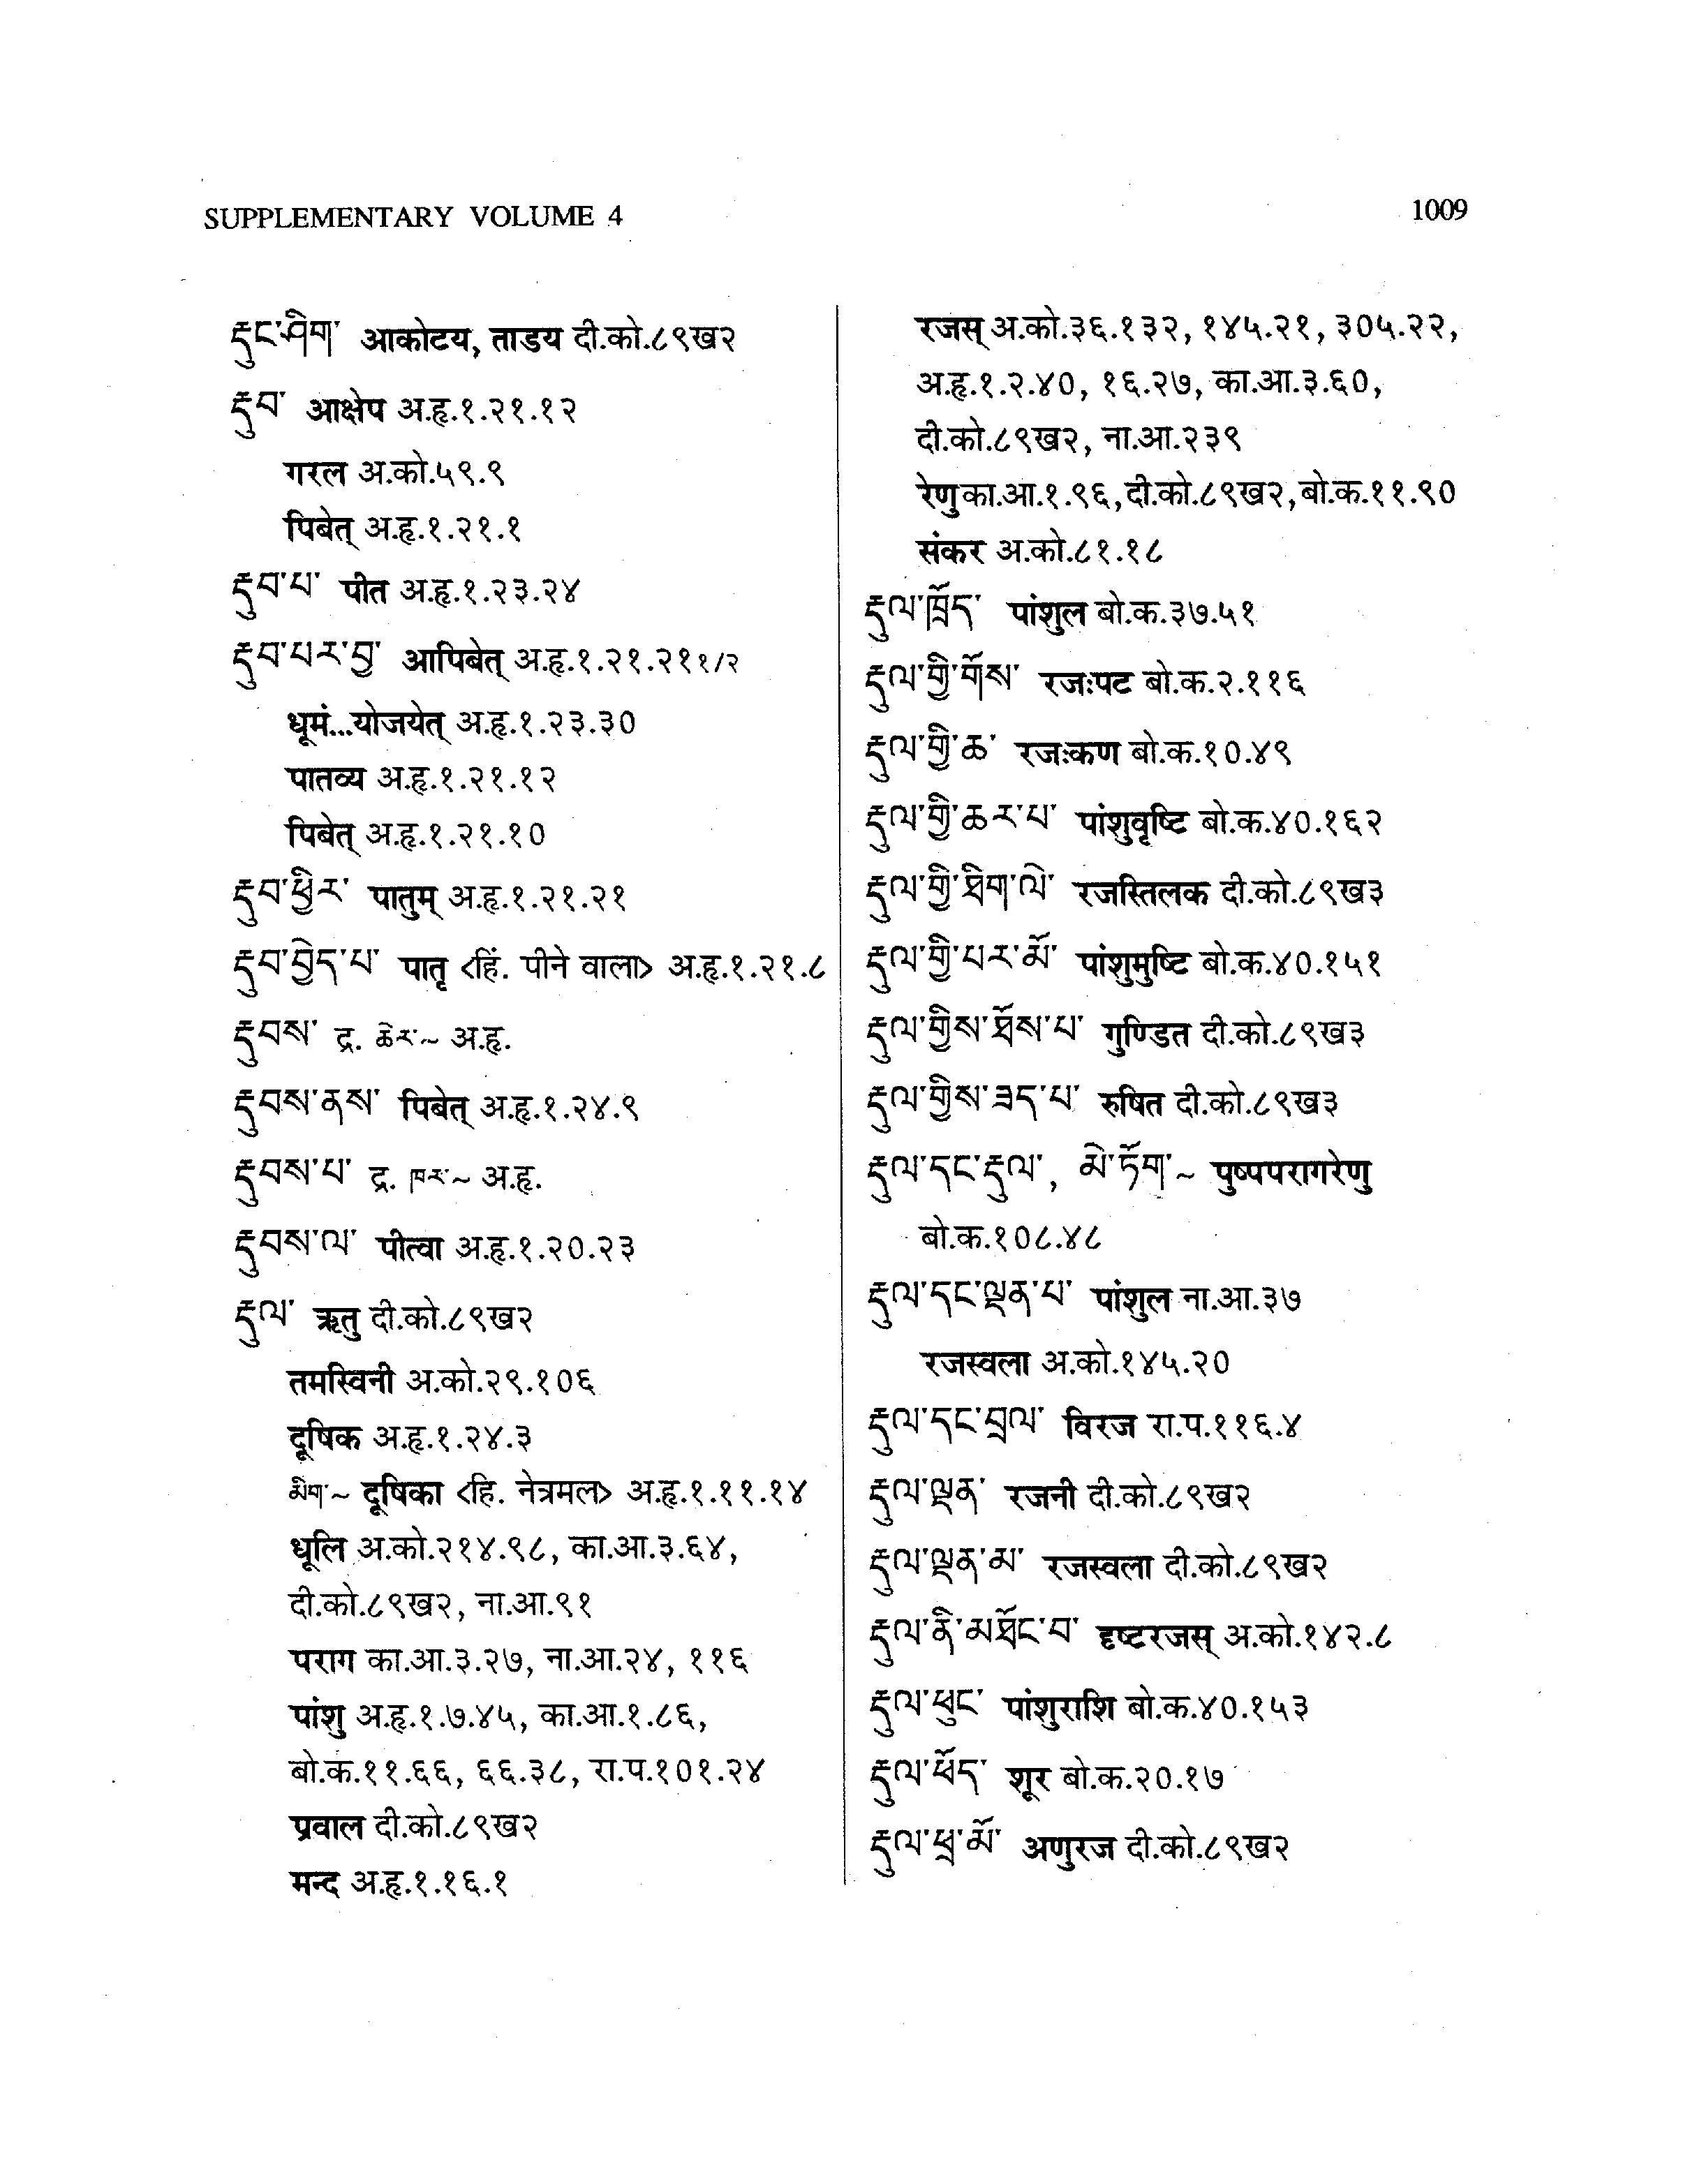 SUPPLEMENTARY VOLUME 4
1009
རྡུང་ཤིག་ आकोटय, ताडय दी.को.८९ख२
རྡུབ་ आक्षेप अ.हृ.१.२१.१२
गरल अ.को.५९.९
पिबेत् अ.हृ.१.२१.१
རྡུབ་པ་ पीत अ.हृ.१.२३.२४
རྡུབ་པར་བྱ་ आपिबेत् अ.हृ.१.२१.२११/२
धूमं...योजयेत् अ.हृ.१.२३.३०
पातव्य अ.हृ.१.२१.१२
पिबेत् अ.हृ.१.२१.१०
རྡུབ་ཕྱིར་ पातुम् अ.हृ.१.२१.२१
རྡུབ་བྱེད་པ་ पातृ <हिं. पीने वाला> अ.हृ.१.२१.८
རྡུབས་ द्र. ཆེར་~ अ.हृ.
རྡུབས་ནས་ पिबेत् अ.हृ.१.२४.९
རྡུབས་པ་ द्र. ཁར་~ अ.हृ.
རྡུབས་ལ་ पीत्वा अ.हृ.१.२०.२३
རྡུལ་ ऋतु दी.को.८९ख२
तमस्विनी अ.को.२९.१०६
दूषिक अ.हृ.१.२४.३
མིག་~ दूषिका <हि. नेत्रमल> अ.हृ.१.११.१४
धूलि अ.को.२१४.९८, का.आ.३.६४,
दी.को.८९ख२, ना.आ.९१
पराग का.आ.३.२७, ना.आ.२४, ११६
पांशु अ.हृ.१.७.४५, का.आ.१.८६,
बो.क.११.६६, ६६.३८, रा.प.१०१.२४
प्रवाल दी.को.८९ख२
मन्द अ.हृ.१.१६.१
रजस् अ.को.३६.१३२, १४५.२१, ३०५.२२,
अ.हृ.१.२.४०, १६.२७, का.आ.३.६०,
दी.को.८९ख२, ना.आ.२३९
रेणु का.आ.१.९६, दी.को.८९ख२, बो.क.११.९०
संकर अ.को.८१.१८
རྡུལ་ཁྲོད་ पांशुल बो.क.३७.५१
རྡུལ་གྱི་གོས་ रजःपट बो.क.२.११६
རྡུལ་གྱི་ཆ་ रजःकण बो.क.१०.४९
རྡུལ་གྱི་ཆར་པ་ पांशुवृष्टि बो.क.४०.१६२
རྡུལ་གྱི་ཐིག་ལེ་ रजस्तिलक दी.को.८९ख३
རྡུལ་གྱི་པར་མོ་ पांशुमुष्टि बो.क.४०.१५१
རྡུལ་གྱིས་ཐོས་པ་ गुण्डित दी.को.८९ख३
རྡུལ་གྱིས་ཟད་པ་ रुषित दी.को.८९ख३
རྡུལ་དང་རྡུལ་, མེ་ཏོག་~ पुष्पपरागरेणु
बो.क.१०८.४८
རྡུལ་དང་ལྡན་པ་ पांशुल ना.आ.३७
रजस्वला अ.को.१४५.२०
རྡུལ་དང་བྲལ་ विरज रा.प.११६.४
རྡུལ་ལྡན་ रजनी दी.को.८९ख२
རྡུལ་ལྡན་མ་ रजस्वला दी.को.८९ख२
རྡུལ་ནི་མཐོང་བ་ दृष्टरजस् अ.को.१४२.८
རྡུལ་ཕུང་ पांशुराशि बो.क.४०.१५३
རྡུལ་ཕོད་ शूर बो.क.२०.१७
རྡུལ་ཕྲ་མོ་ अणुरज दी.को.८९ख२